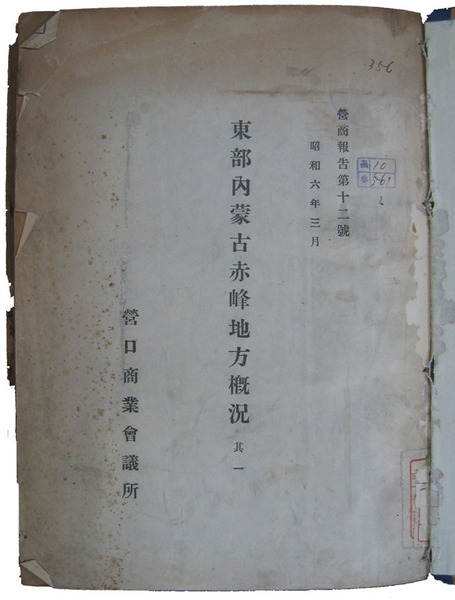 營商報告第十二號
昭和六年三月
東部內蒙古赤峰地方概況 其一
營口商業會議所
356
10
561
2